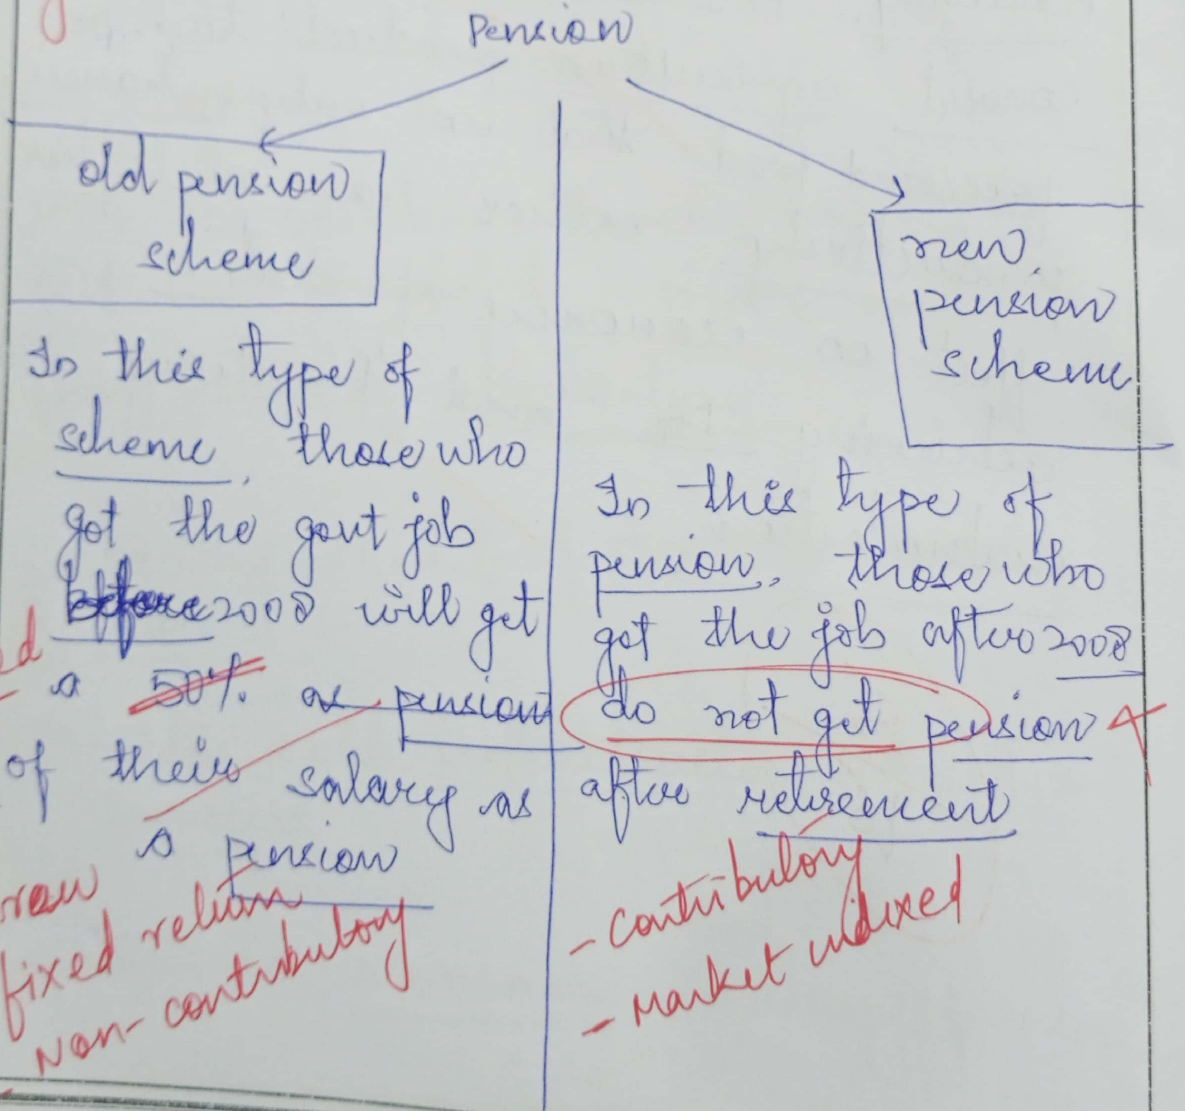 Pension
old pension
scheme
In this type of
scheme, those who
got the govt job
before 2008 will get
a 50% as pension
of their salary as
a pension
fixed return
Non-contributory
new
pension
scheme
In this type of
pension, those who
got the job after 2008
do not get pension
after retirement
- contributory
- Market indixed